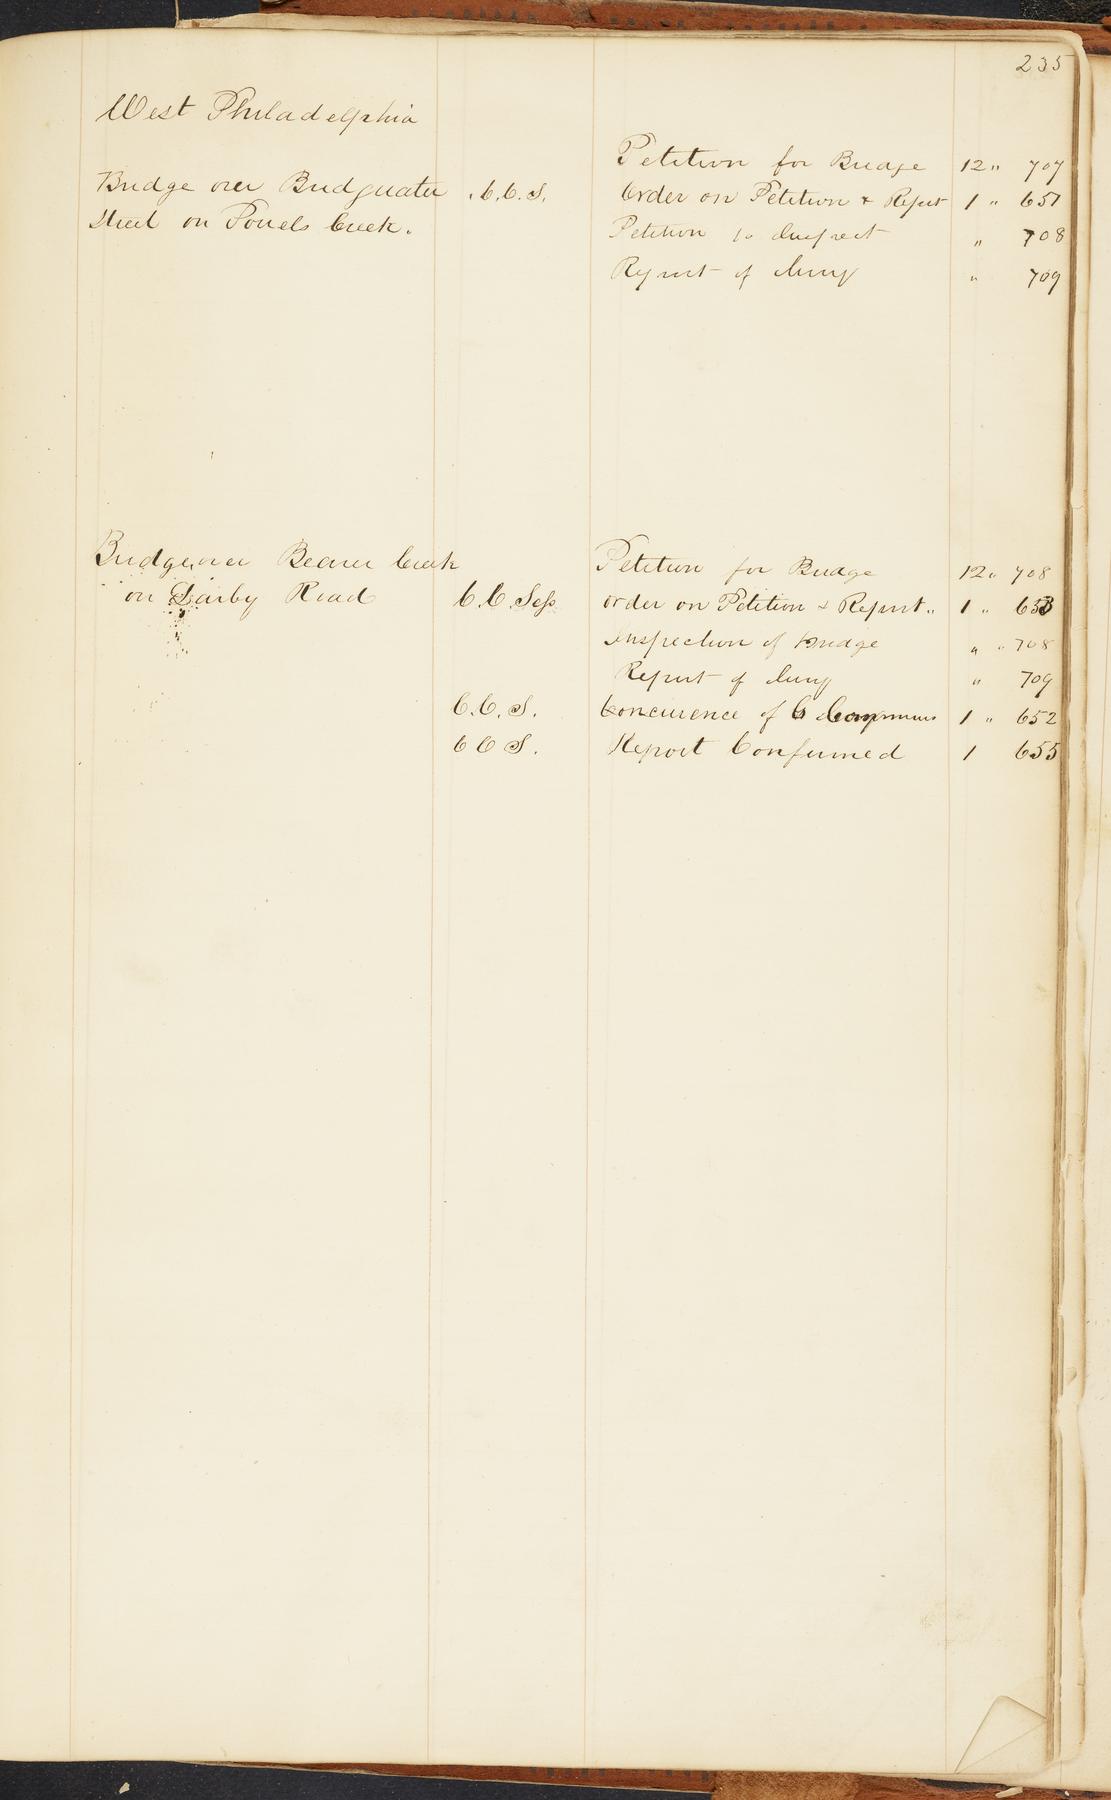 235
West Philadelphia
Petition for Bridge 12 " 707
Bridge over Bridgwater C.C.S. Order on Petition & Report 1 " 651
Street on Powels Creek. Petition to Inspect " 708
Report of Jury " 709
Bridge over Beaver Creek Petition for Bridge 12 " 708
on Darby Road C.C. Sess order on Petition & Report " 1 "
Inspection of Bridge " " 708
Report of Jury " 709
C.C.S. Concurence of C 1 " 652
C C S. Report Confirmed 1 655